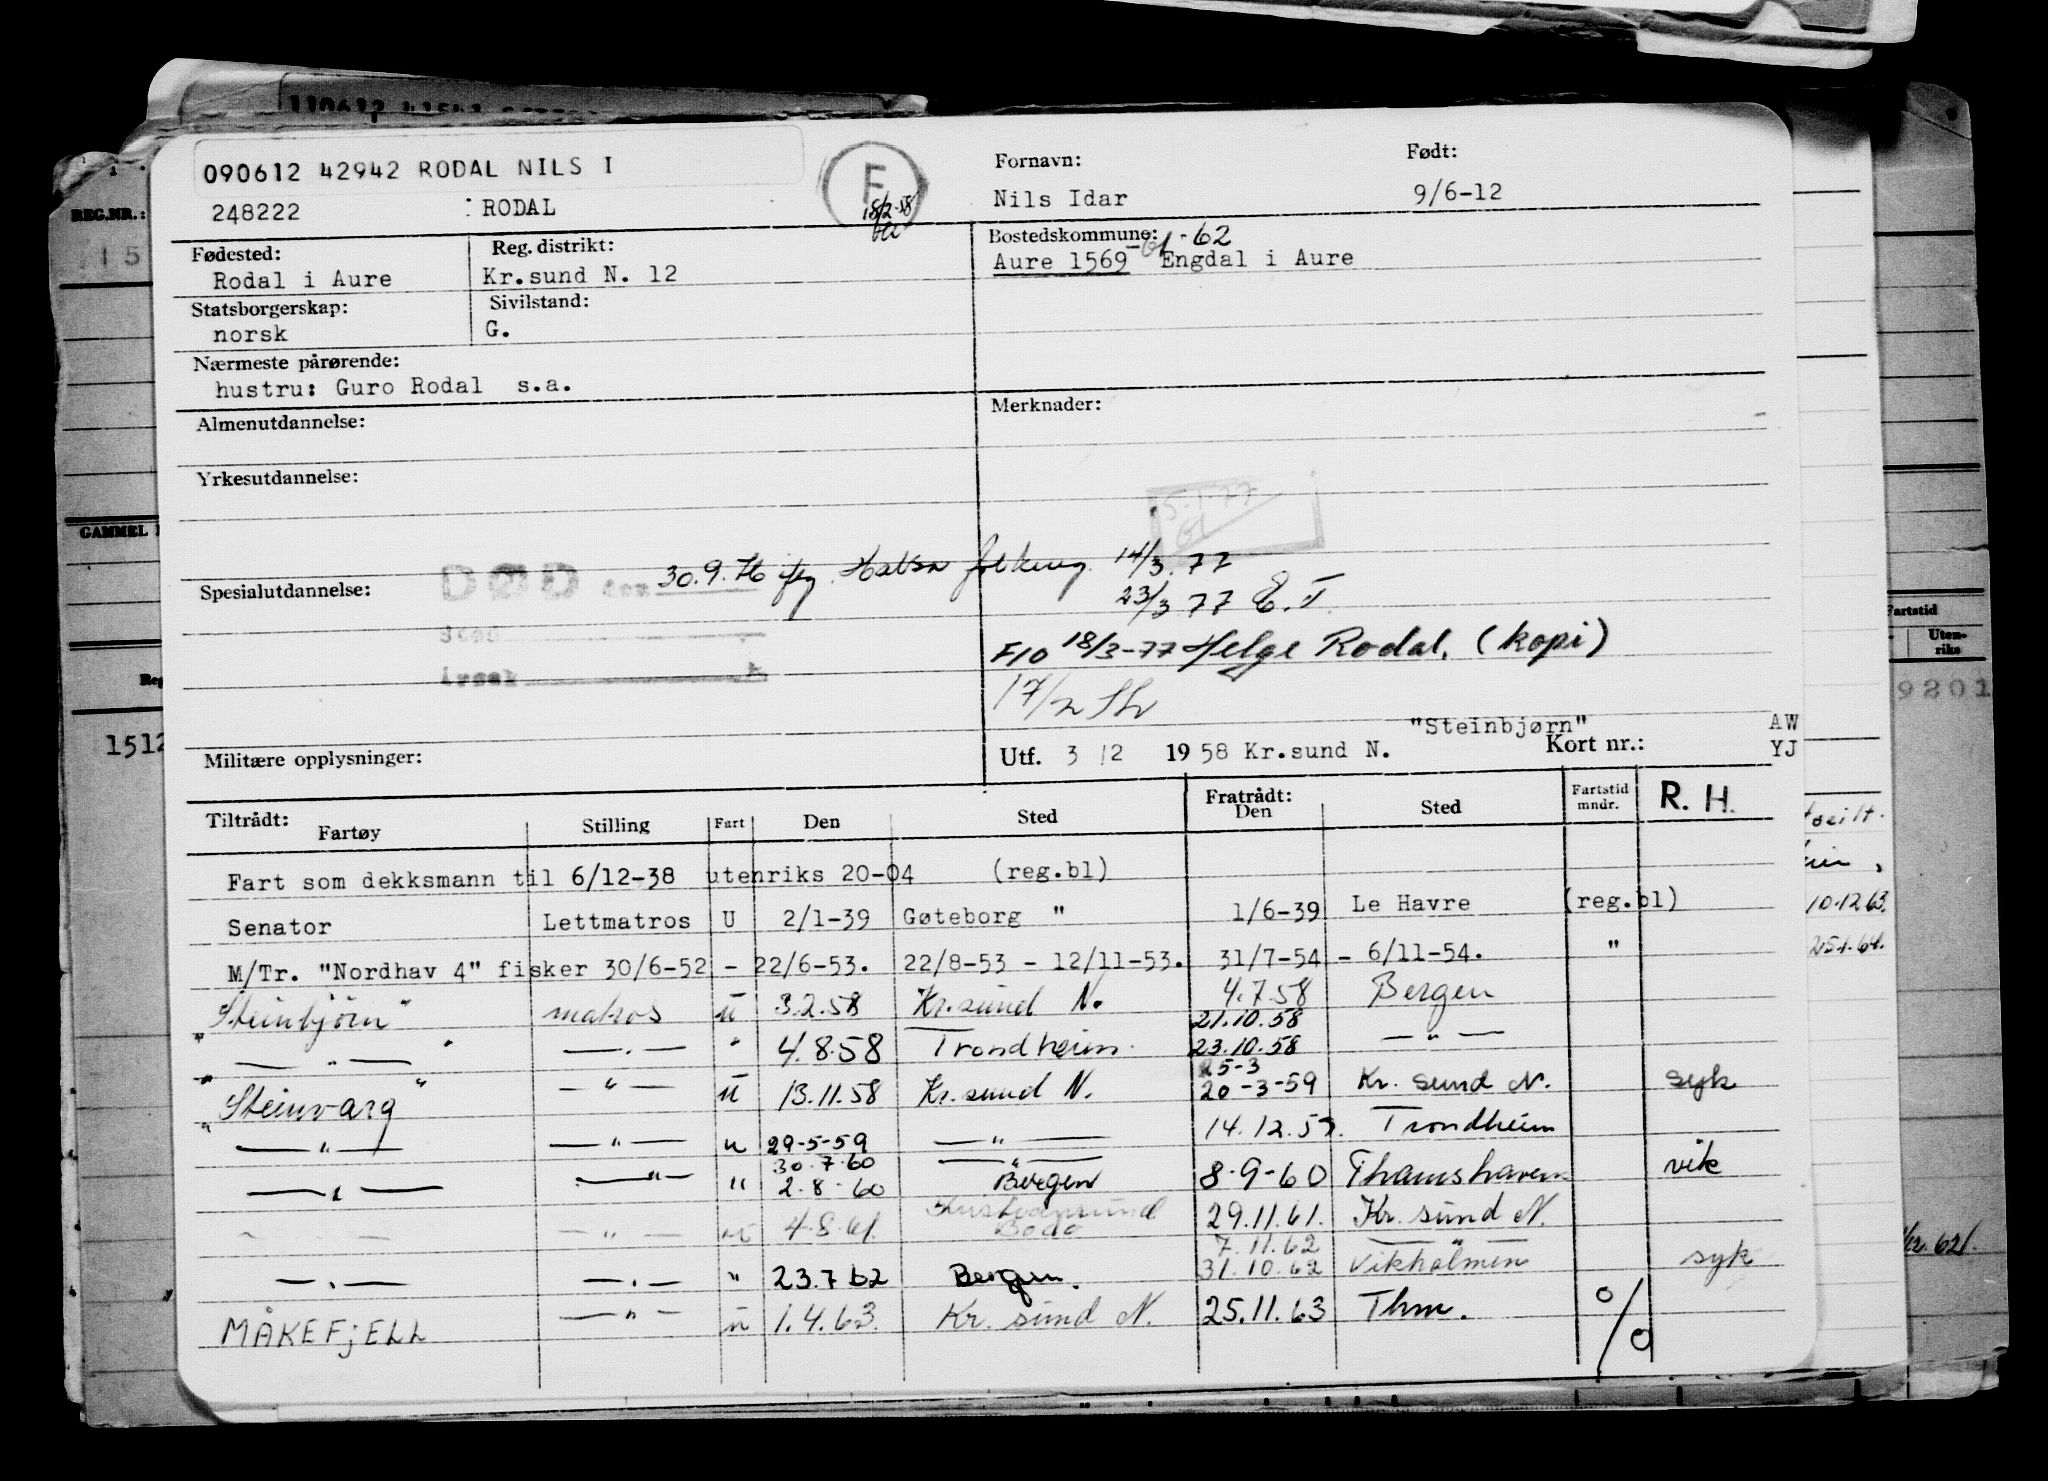 090612 42942 RODAL NILS I
248222 RODAL
F
18/2-58
Fornavn:
Nils Idar
Født:
9/6-12
Fødested:
Rodal i Aure
Reg. distrikt:
Kr.sund N. 12
Bostedskommune:
-61-62
Aure 1569 Engdal i Aure
Statsborgerskap:
norsk
Sivilstand:
G.
Nærmeste pårørende:
hustru: Guro Rodal s.a.
Almenutdannelse:
Merknader:
Yrkesutdannelse:
5-1-77
Spesialutdannelse:
DØD den 30.9.76 14/3.77
Sted
årsak
23/3 77 E.T.
F10 18/3-77 Helge Rodal. (kopi)
17/2
Militære opplysninger:
"Steinbjørn"
Utf. 3 /2 1958 Kr.sund N. Kort nr.:
AW
YJ
Tiltrådt: Fartøy Stilling Fart Den Sted Fratrådt: Den Sted Fartstid mndr. R.H.
Fart som dekksmann til 6/12-38 utenriks 20-04 (reg.bl)
Senator Lettmatros U 2/1-39 Gøteborg " 1/6-39 Le Havre (reg.bl)
M/Tr. "Nordhav 4" fisker 30/6-52 - 22/6-53. 22/8-53 - 12/11-53. 31/7-54 - 6/11-54. "
"Steinbjörn" matros u 3.2.58 Kr.sund N. 4.7.58 Bergen
21.10.58
" — " — " — " — " 4.8.58 Trondheim 23.10.58 — " —
25-3
"Steinvarg" — " — u 13.11.58 Kr.sund N. 20-3-59 Kr.sund N. syk
— " — — " — u 29-5-59 — " — 14.12.59. Trondheim
30.7.60 — " —
— " — — " — " 2.8.60 Bergen 8-9-60 Thamshavn vik
Kristiansund
— " — — " — u 4.8.61. Bodø 29.11.61. Kr. sund N.
7.11.62 — " —
— " — — " — " 23.7 62 Bergen. 31.10.62 Vikholmen syk
MÅKEFjELL — " — u 1.4.63. Kr. sund N. 25.11.63 Thm. o/o
REG.NR.:
15
GAMMEL
Reg
1512
Fartstid
Uten-
riks
9801
10.12 63.
25.1.64.